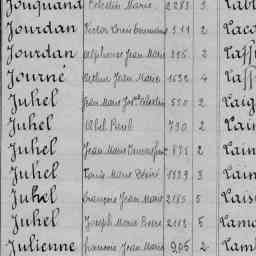 Jouquand Célestin Marie 2253 3
Jourdan Victor 511 2 Laco
Jourdan Alphonse Jean Marie 395 2 Laff
Journé Arthur Jean Marie 1632 4 Laff
Juhel Jean Marie 550 2 Laig
Juhel Abel Paul 730 2 Lain
Juhel Jean Marie 875 2 Lain
Juhel Louis Marie Désiré 1393 3 Lain
Juhel François Jean Marie 2185 5 Lais
Juhel Joseph Marie Pierre 2113 5 Lam
Julienne François Jean Marie 905 2 Lam